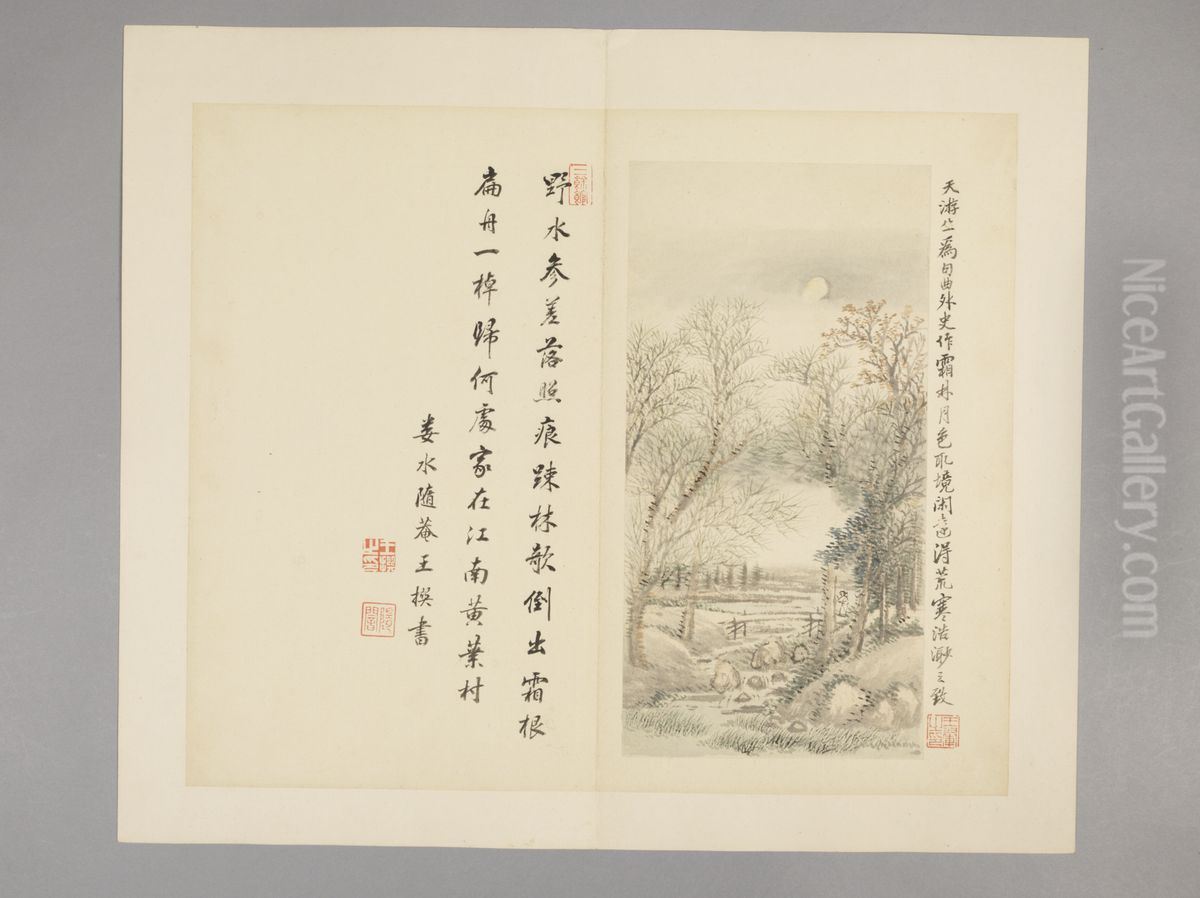 天游生為句曲外史作霜林月色取境閑遠得荒寒浩渺之致
野水參差落照痕疎林欹倒出霜根
扁舟一棹歸何處家在江南黃葉村
婁水隨菴王撰書
王撰之印
NiceArtGallery.com